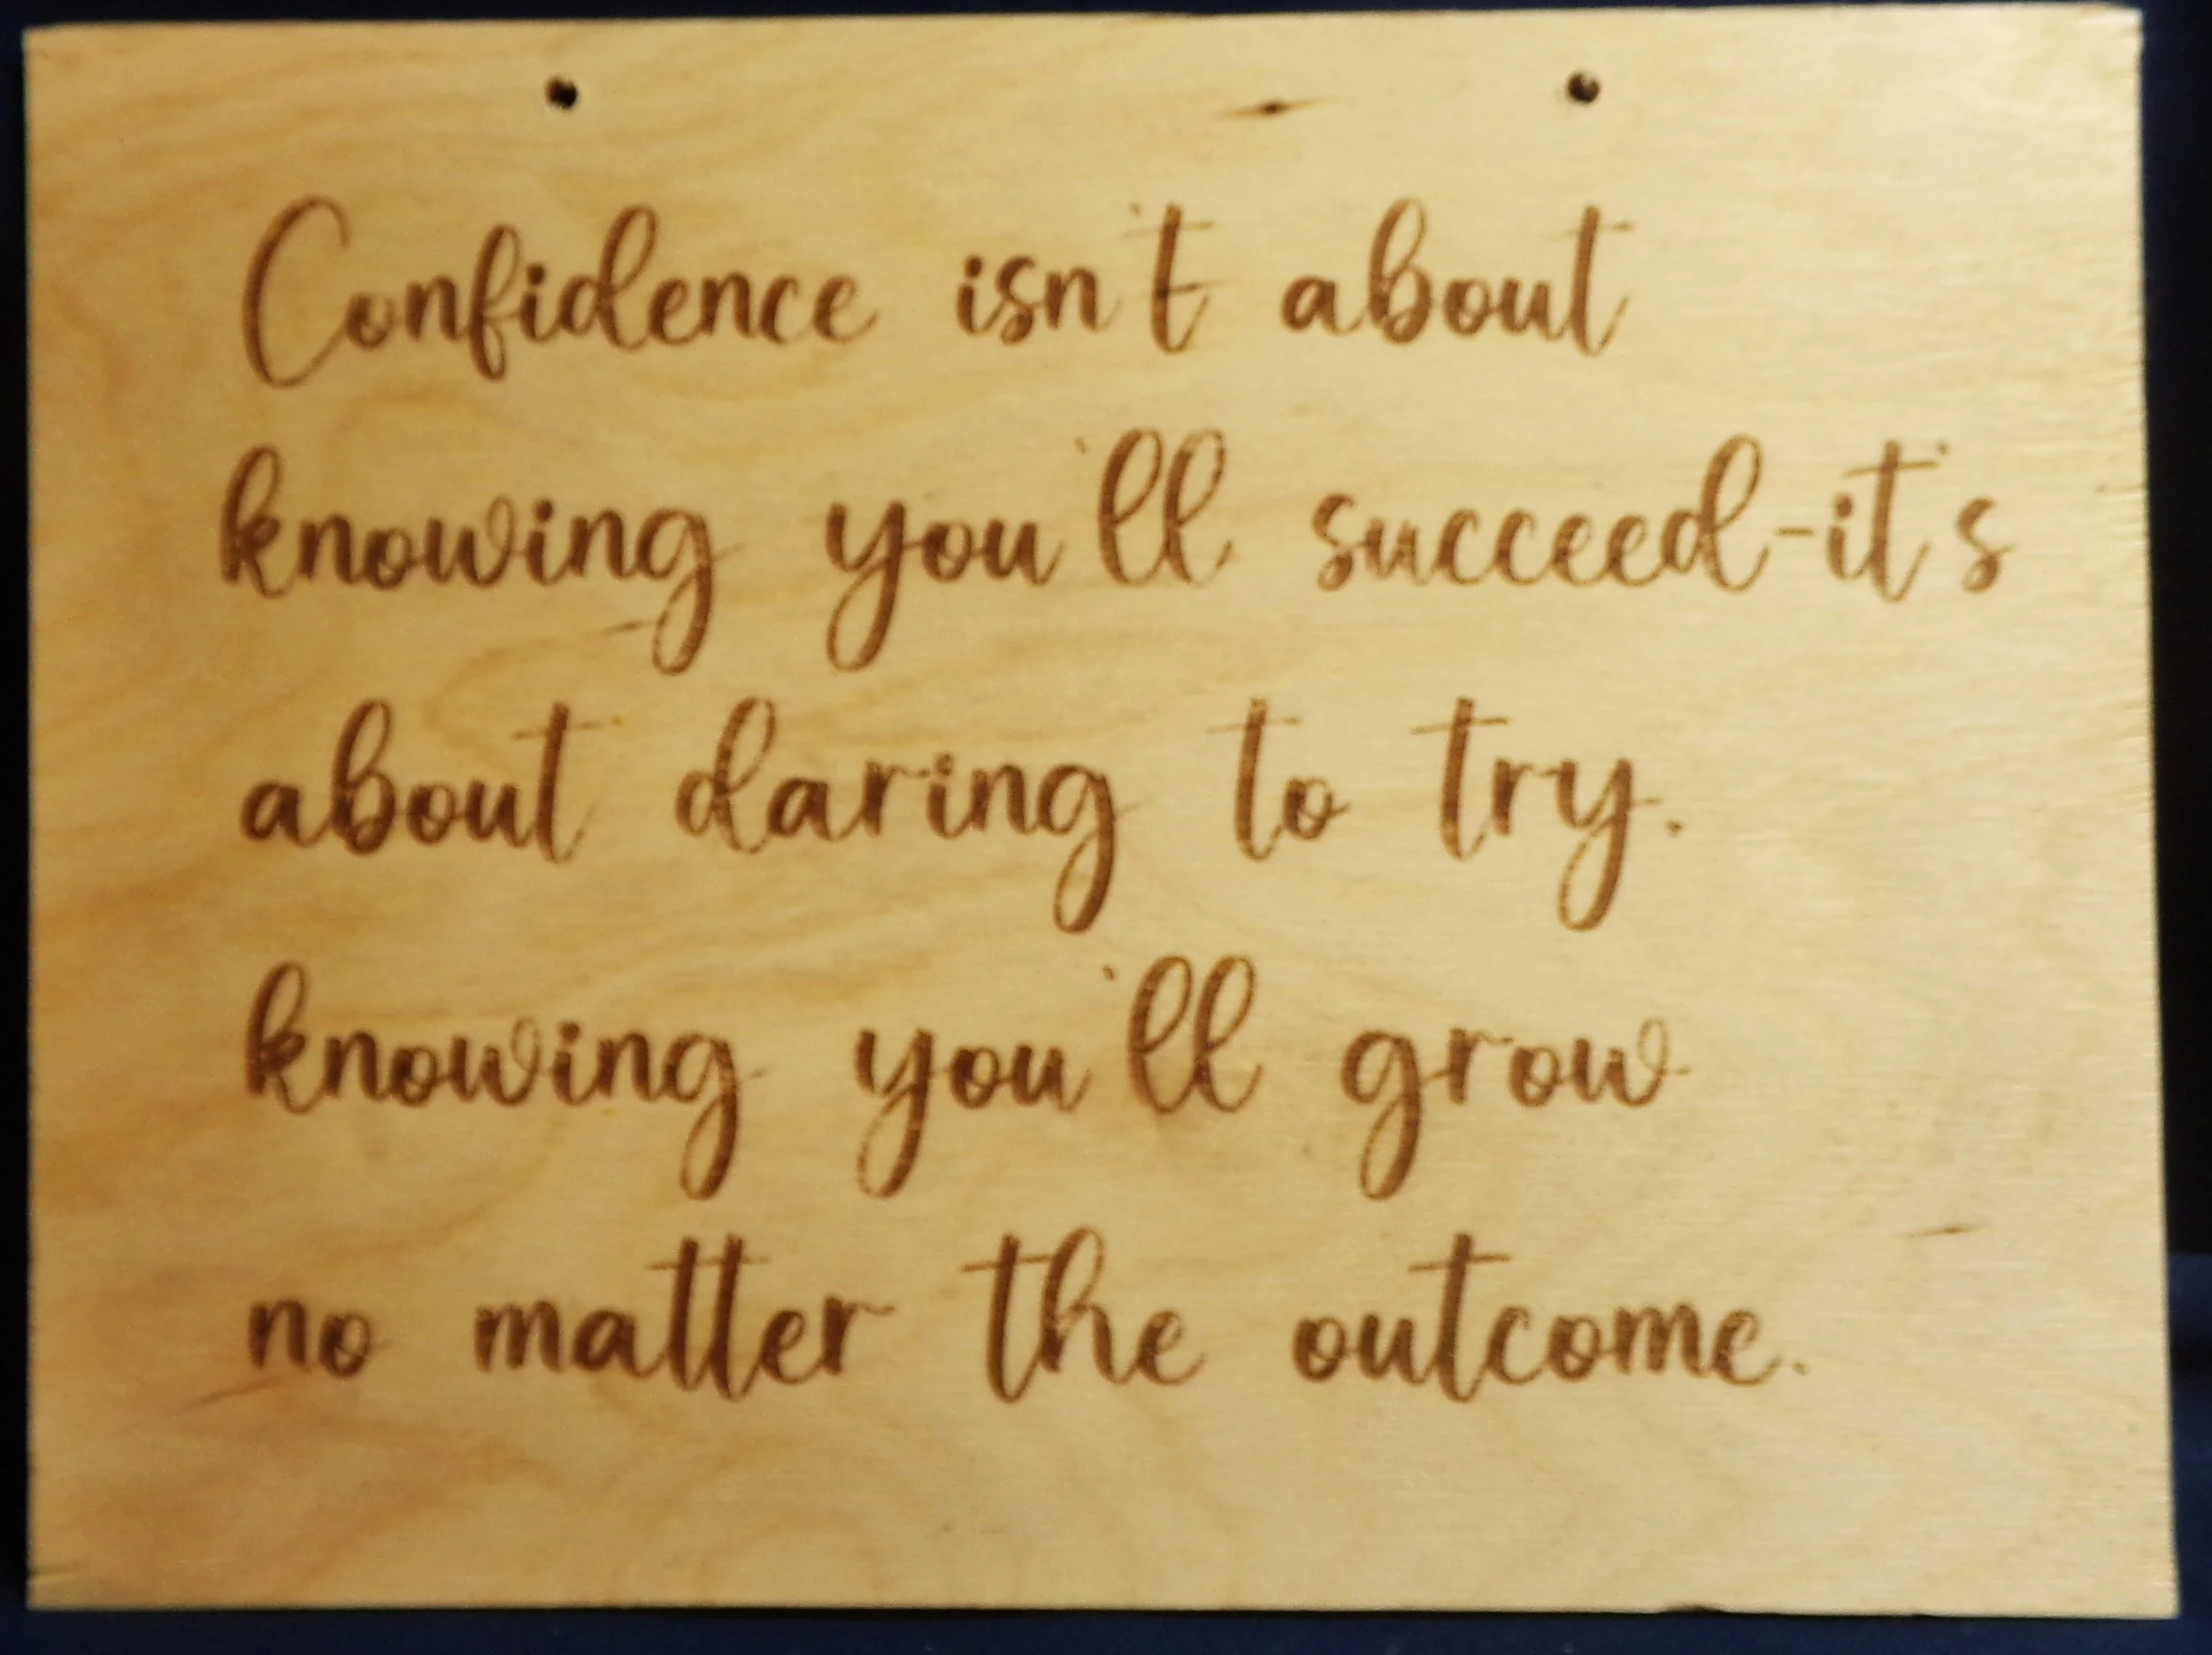 Confidence isn't about
knowing you'll succeed-it's
about daring to try.
knowing you'll grow
no matter the outcome.